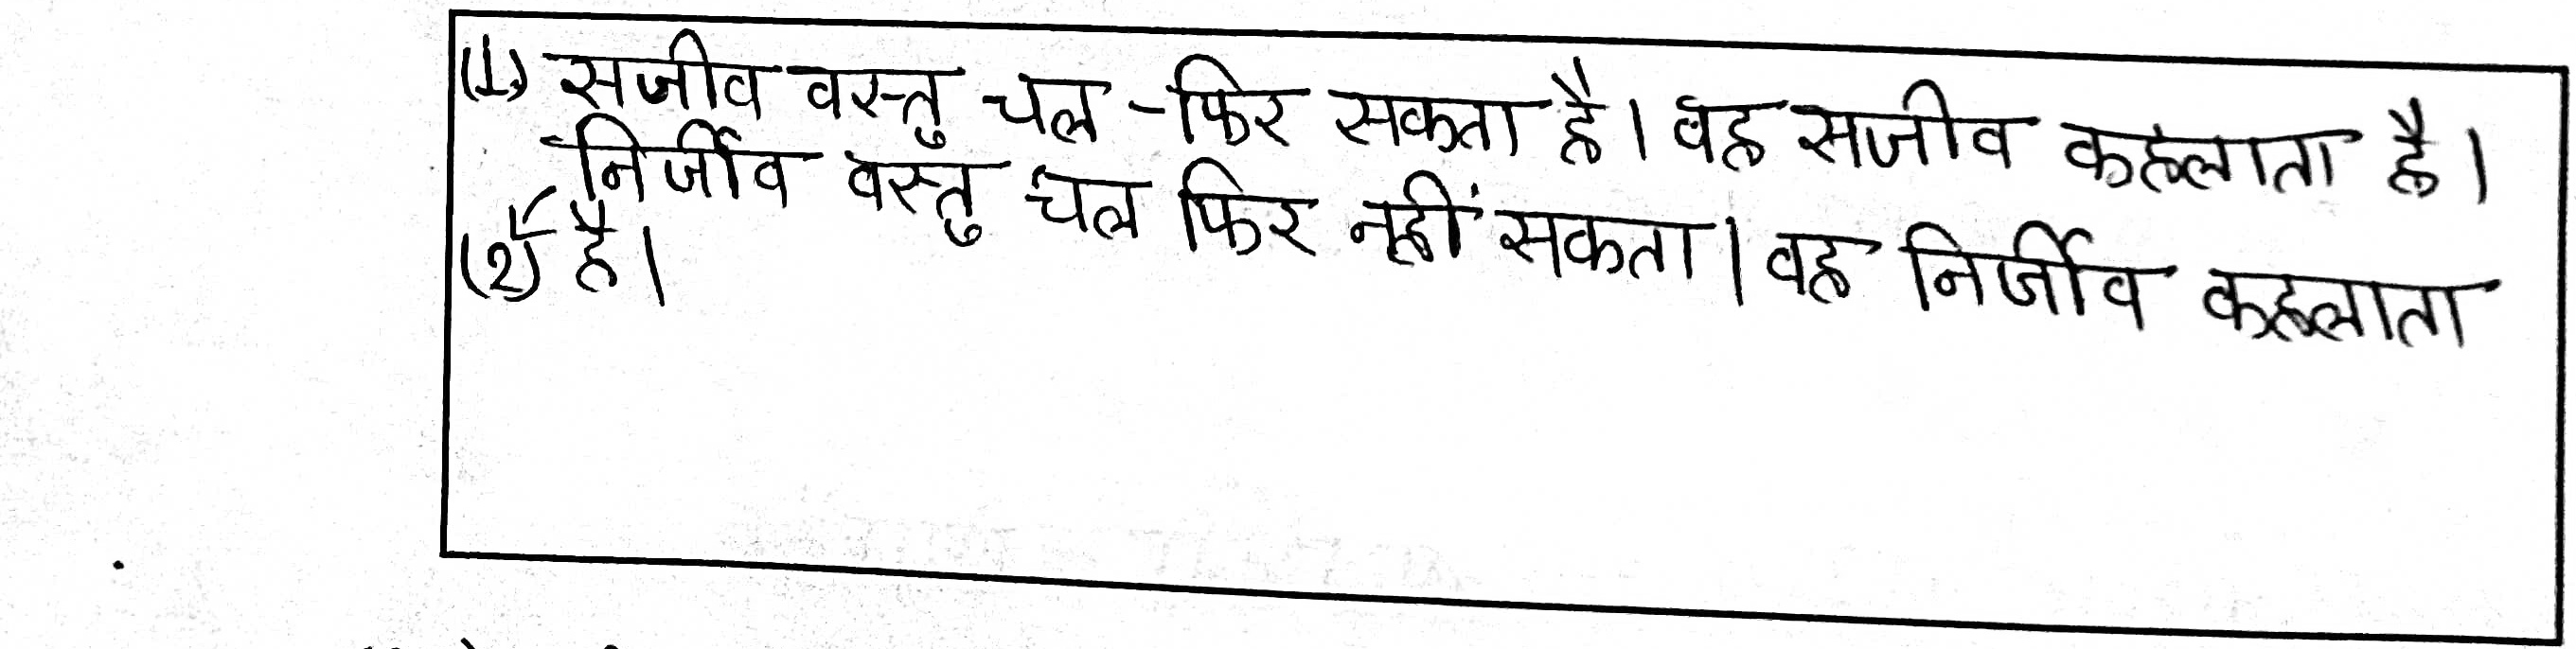 (1) सजीव वस्तु चल -फिर सकता है। वह सजीव कहलाता है।
निर्जीव वस्तु चल फिर नहीं सकता। वह निर्जीव कहलाता
(2) है।